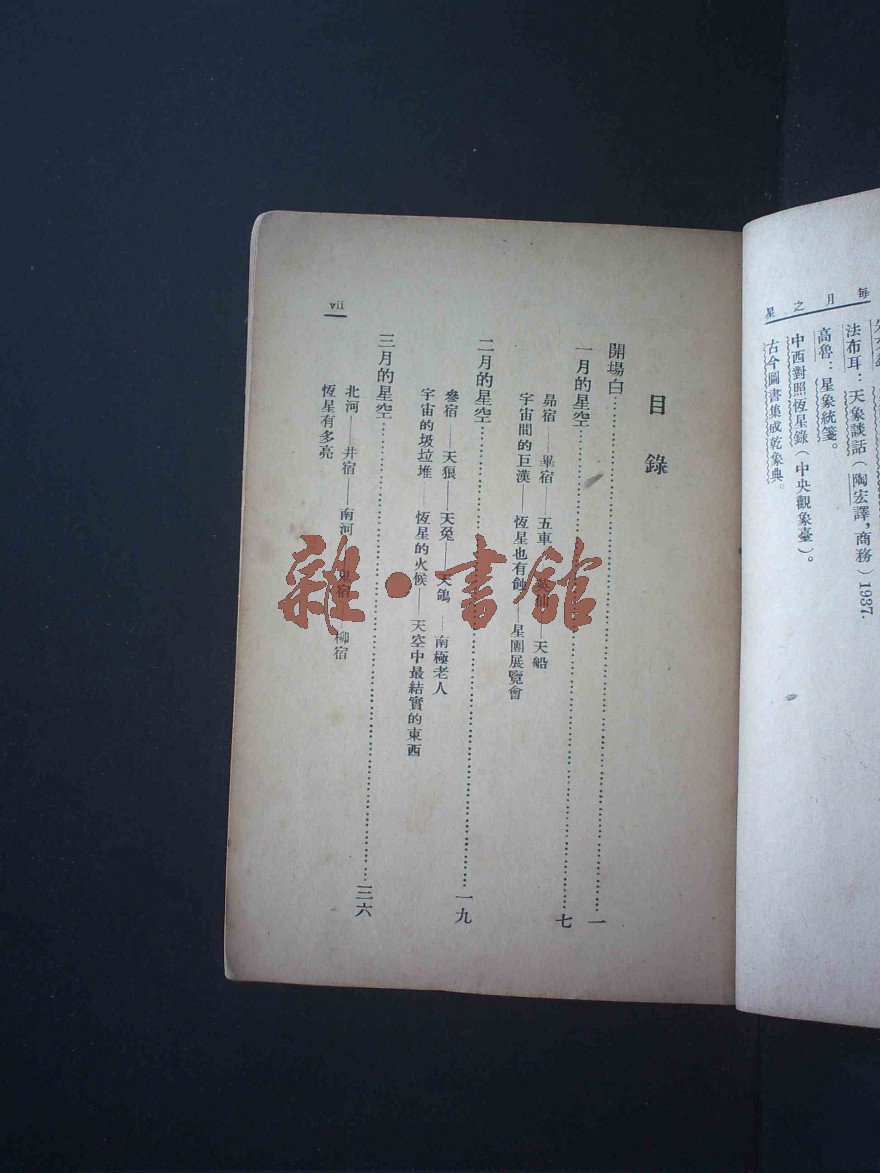 每月之星
法布耳：天象談話（陶宏譯，商務）1937.
高魯：星象統箋。
中西對照恆星錄（中央觀象臺）。
古今圖書集成乾象典。
目錄
開場白……一
一月的星空……七
昴宿——畢宿——五車——英仙——天船
宇宙間的巨漢——恆星也有蝕——星團展覽會
二月的星空……一九
參宿——天狼——天兔——天鴿——南極老人
宇宙的圾垃堆——恆星的火候——天空中最結實的東西
三月的星空……三六
北河——井宿——南河——鬼宿——柳宿
恆星有多亮
vii
雜·書館